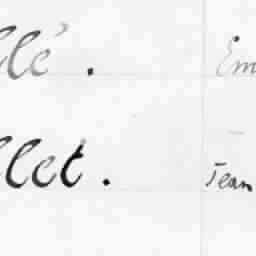 llé. Em
llet. Jean